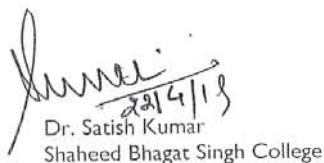 Kumar
22/4/19
Dr. Satish Kumar
Shaheed Bhagat Singh College